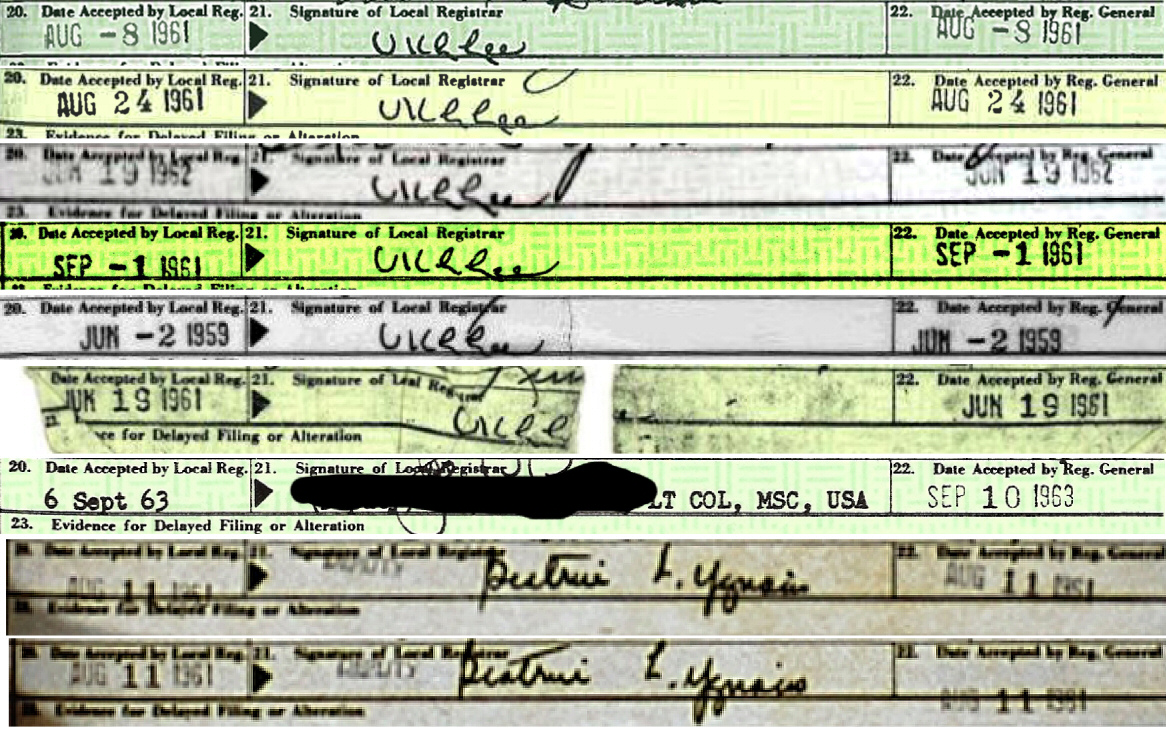 20. Date Accepted by Local Reg. 21. Signature of Local Registrar 22. Date Accepted by Reg. General
AUG -8 1961 UKLLee AUG -8 1961
20. Date Accepted by Local Reg. 21. Signature of Local Registrar 22. Date Accepted by Reg. General
AUG 24 1961 UKLLee AUG 24 1961
23. Evidence for Delayed Filing or Alteration
20. Date Accepted by Local Reg. 21. Signature of Local Registrar 22. Date Accepted by Reg. General
JUN 19 1962 UKLLee JUN 19 1962
23. Evidence for Delayed Filing or Alteration
20. Date Accepted by Local Reg. 21. Signature of Local Registrar 22. Date Accepted by Reg. General
SEP -1 1961 UKLLee SEP -1 1961
Evidence for Delayed Filing or Alteration
20. Date Accepted by Local Reg. 21. Signature of Local Registrar 22. Date Accepted by Reg. General
JUN -2 1959 UKLLee JUN -2 1959
Date Accepted by Local Reg. 21. Signature of Local Registrar 22. Date Accepted by Reg. General
JUN 19 1961 UKLL JUN 19 1961
ce for Delayed Filing or Alteration
20. Date Accepted by Local Reg. 21. Signature of Local Registrar 22. Date Accepted by Reg. General
6 Sept 63 LT COL, MSC, USA SEP 10 1963
23. Evidence for Delayed Filing or Alteration
20. Date Accepted by Local Reg. 21. Signature of Local Registrar 22. Date Accepted by Reg. General
AUG 11 1961 DEPUTY Beatrice L. Ygnacio AUG 11 1961
23. Evidence for Delayed Filing or Alteration
20. Date Accepted by Local Reg. 21. Signature of Local Registrar 22. Date Accepted by Reg. General
AUG 11 1961 DEPUTY Beatrice L. Ygnacio AUG 11 1961
23. Evidence for Delayed Filing or Alteration